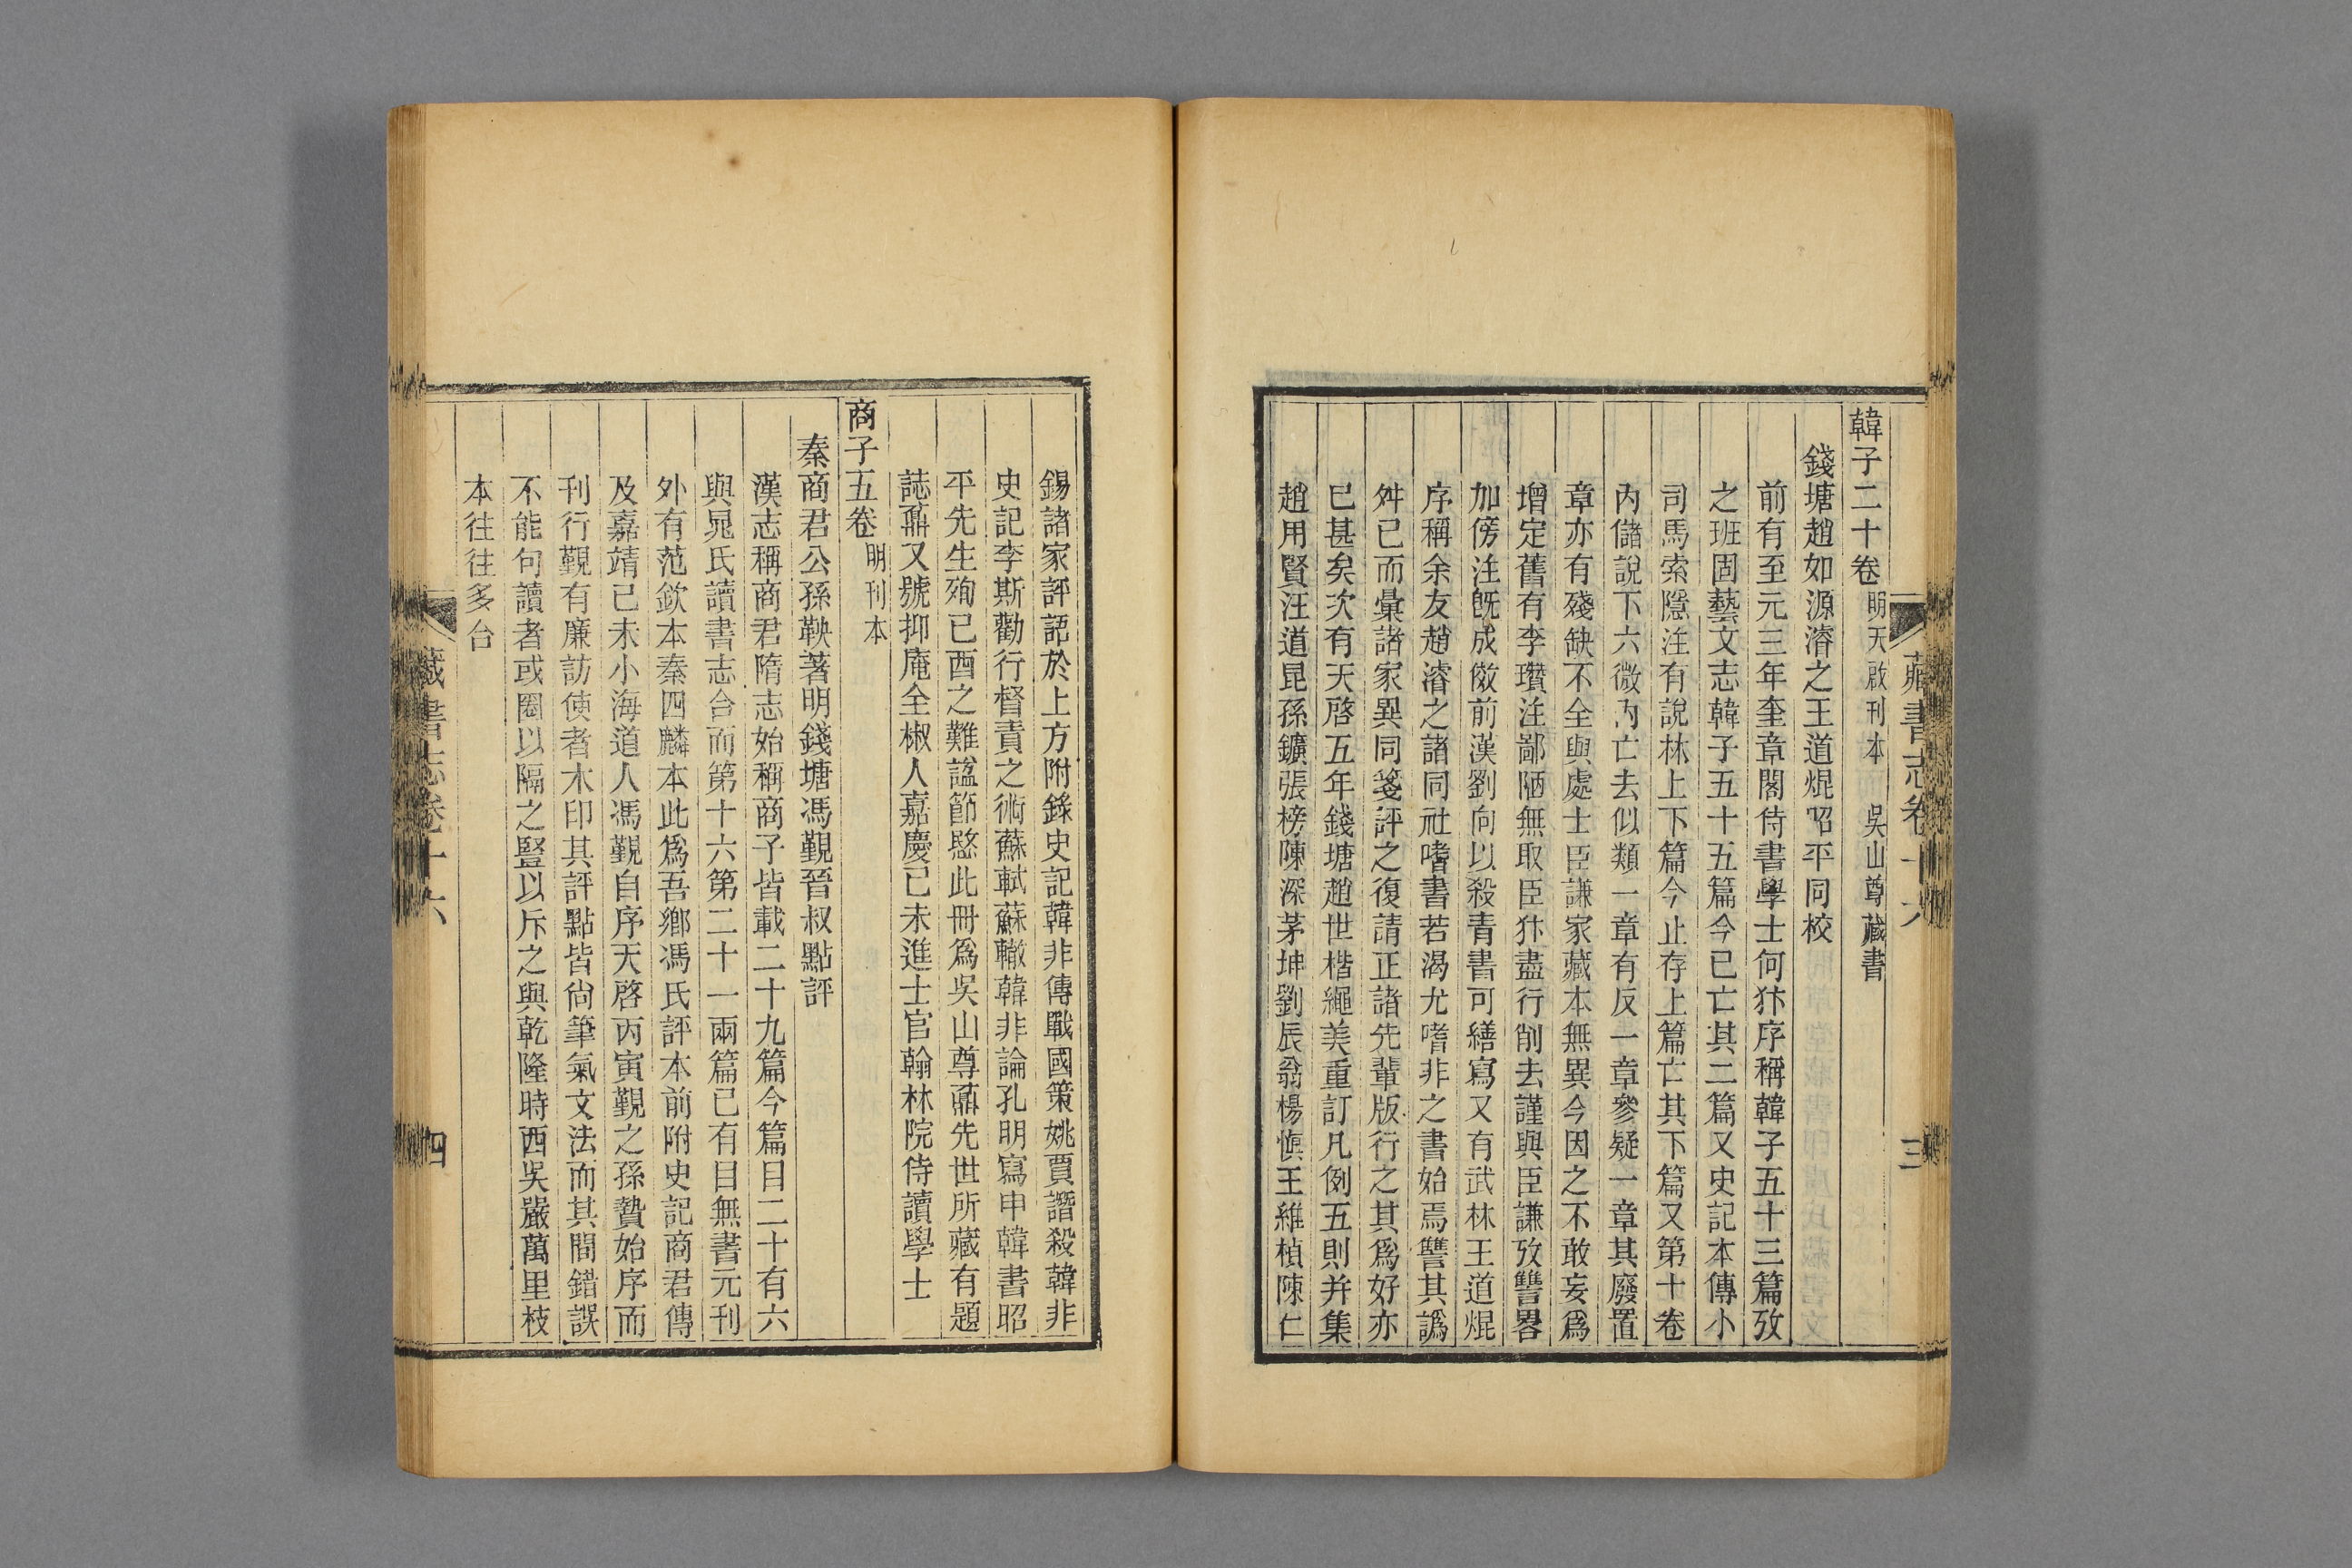 藏書志卷十六 三
韓子二十卷 明天啟刊本 吳山尊藏書
錢塘趙如源濬之王道焜昭平同校
前有至元三年奎章閣侍書學士何犿序稱韓子五十三篇攷
之班固藝文志韓子五十五篇今已亡其二篇又史記本傳小
司馬索隱注有說林上下篇今止存上篇亡其下篇又第十卷
內儲說下六微內亡去似類一章有反一章參疑一章其廢置
章亦有殘缺不全與處士臣謙家藏本無異今因之不敢妄爲
增定舊有李瓚注鄙陋無取臣犿盡行削去謹與臣謙攷讐畧
加傍注旣成倣前漢劉向以殺青書可繕寫又有武林王道焜
序稱余友趙濬之諸同社嗜書若渴尤嗜非之書始焉讐其譌
舛已而彙諸家異同箋評之復請正諸先輩版行之其爲好亦
已甚矣次有天啓五年錢塘趙世楷繩美重訂凡例五則并集
趙用賢汪道昆孫鑛張榜陳深茅坤劉辰翁楊愼王維楨陳仁
錫諸家評語於上方附錄史記韓非傳戰國策姚賈譖殺韓非
史記李斯勸行督責之術蘇軾蘇轍韓非論孔明寫申韓書昭
平先生殉已酉之難諡節愍此冊爲吳山尊鼒先世所藏有題
誌鼒又號抑庵全椒人嘉慶己未進士官翰林院侍讀學士
商子五卷 明刊本
秦商君公孫鞅著明錢塘馮覲晉叔點評
漢志稱商君隋志始稱商子皆載二十九篇今篇目二十有六
與晁氏讀書志合而第十六第二十一兩篇已有目無書元刊
外有范欽本秦四麟本此爲吾鄉馮氏評本前附史記商君傳
及嘉靖已未小海道人馮覲自序天啓丙寅覲之孫贄始序而
刊行覲有廉訪使者木印其評點皆尙筆氣文法而其間錯誤
不能句讀者或圈以隔之豎以斥之與乾隆時西吳嚴萬里校
本往往多合
藏書志卷十六 四